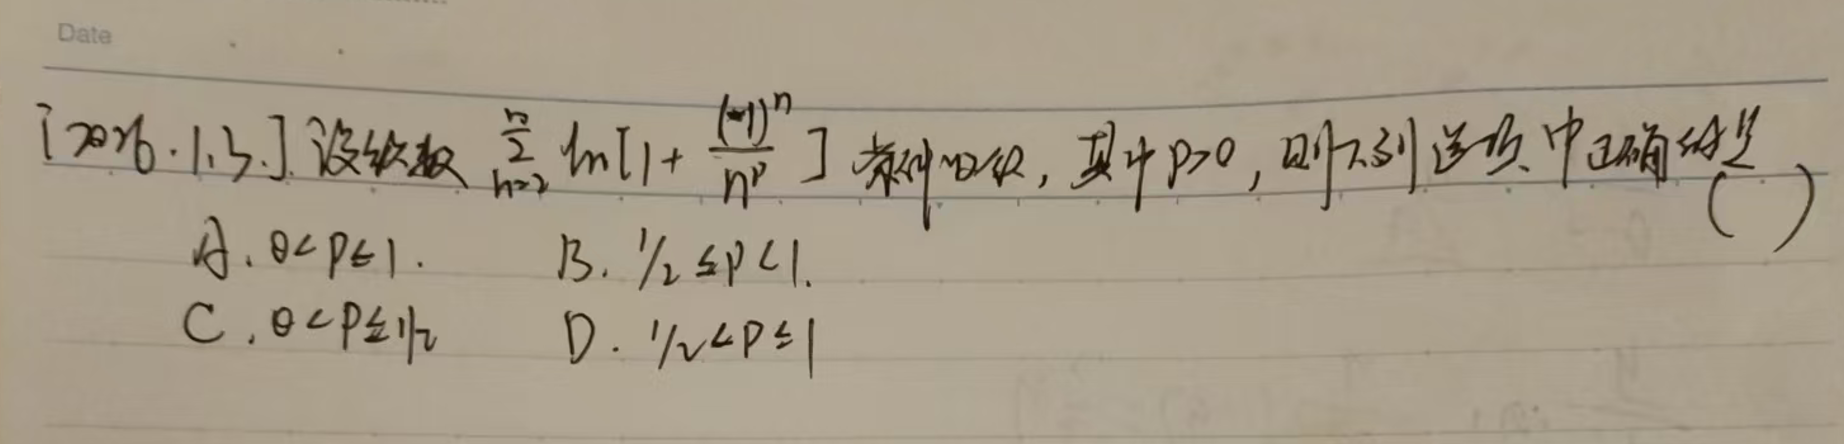 Date
[2026.1.3.] 设级数 ∞∑n=2 ln[1+(-1)^n/n^p] 条件收敛,其中p>0,则下列选项中正确的是( )
A. 0<p≤1. B. 1/2≤p<1.
C. 0<p≤1/2 D. 1/2<p≤1